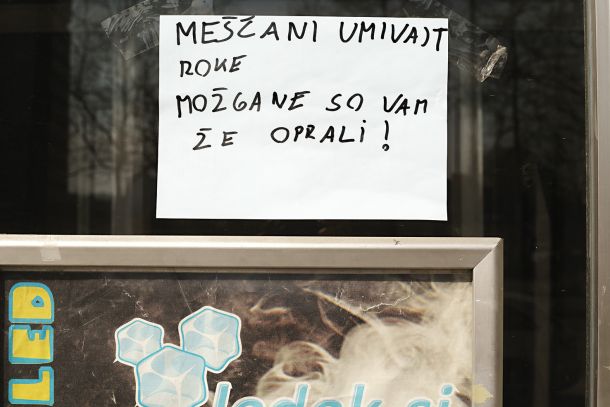 MEŠČANI UMIVAJT
ROKE
MOŽGANE SO VAM
ŽE OPRALI!
LED
ledek.si